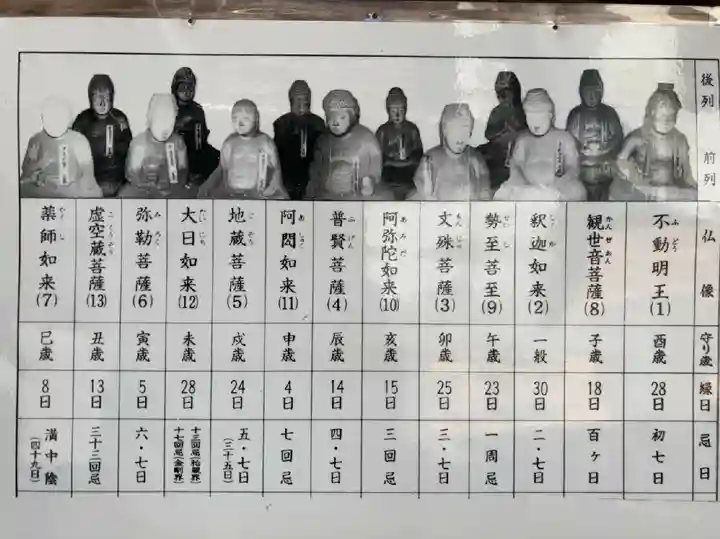 後列 前列
仏像
守り歳
縁日
忌日
不動明王(1)
酉歳
28日
初七日
観世音菩薩(8)
子歳
18日
百ヶ日
釈迦如来(2)
一般
30日
二・七日
勢至菩至(9)
午歳
23日
一周忌
文殊菩薩(3)
卯歳
25日
三・七日
阿弥陀如来(10)
亥歳
15日
三回忌
普賢菩薩(4)
辰歳
14日
四・七日
阿閦如来(11)
申歳
4日
七回忌
地蔵菩薩(5)
戌歳
24日
五・七日
(三十五日)
大日如来(12)
未歳
28日
十三回忌(胎蔵界)
十七回忌(金剛界)
弥勒菩薩(6)
寅歳
5日
六・七日
虚空蔵菩薩(13)
丑歳
13日
三十二回忌
薬師如来(7)
巳歳
8日
満中陰
(四十九日)